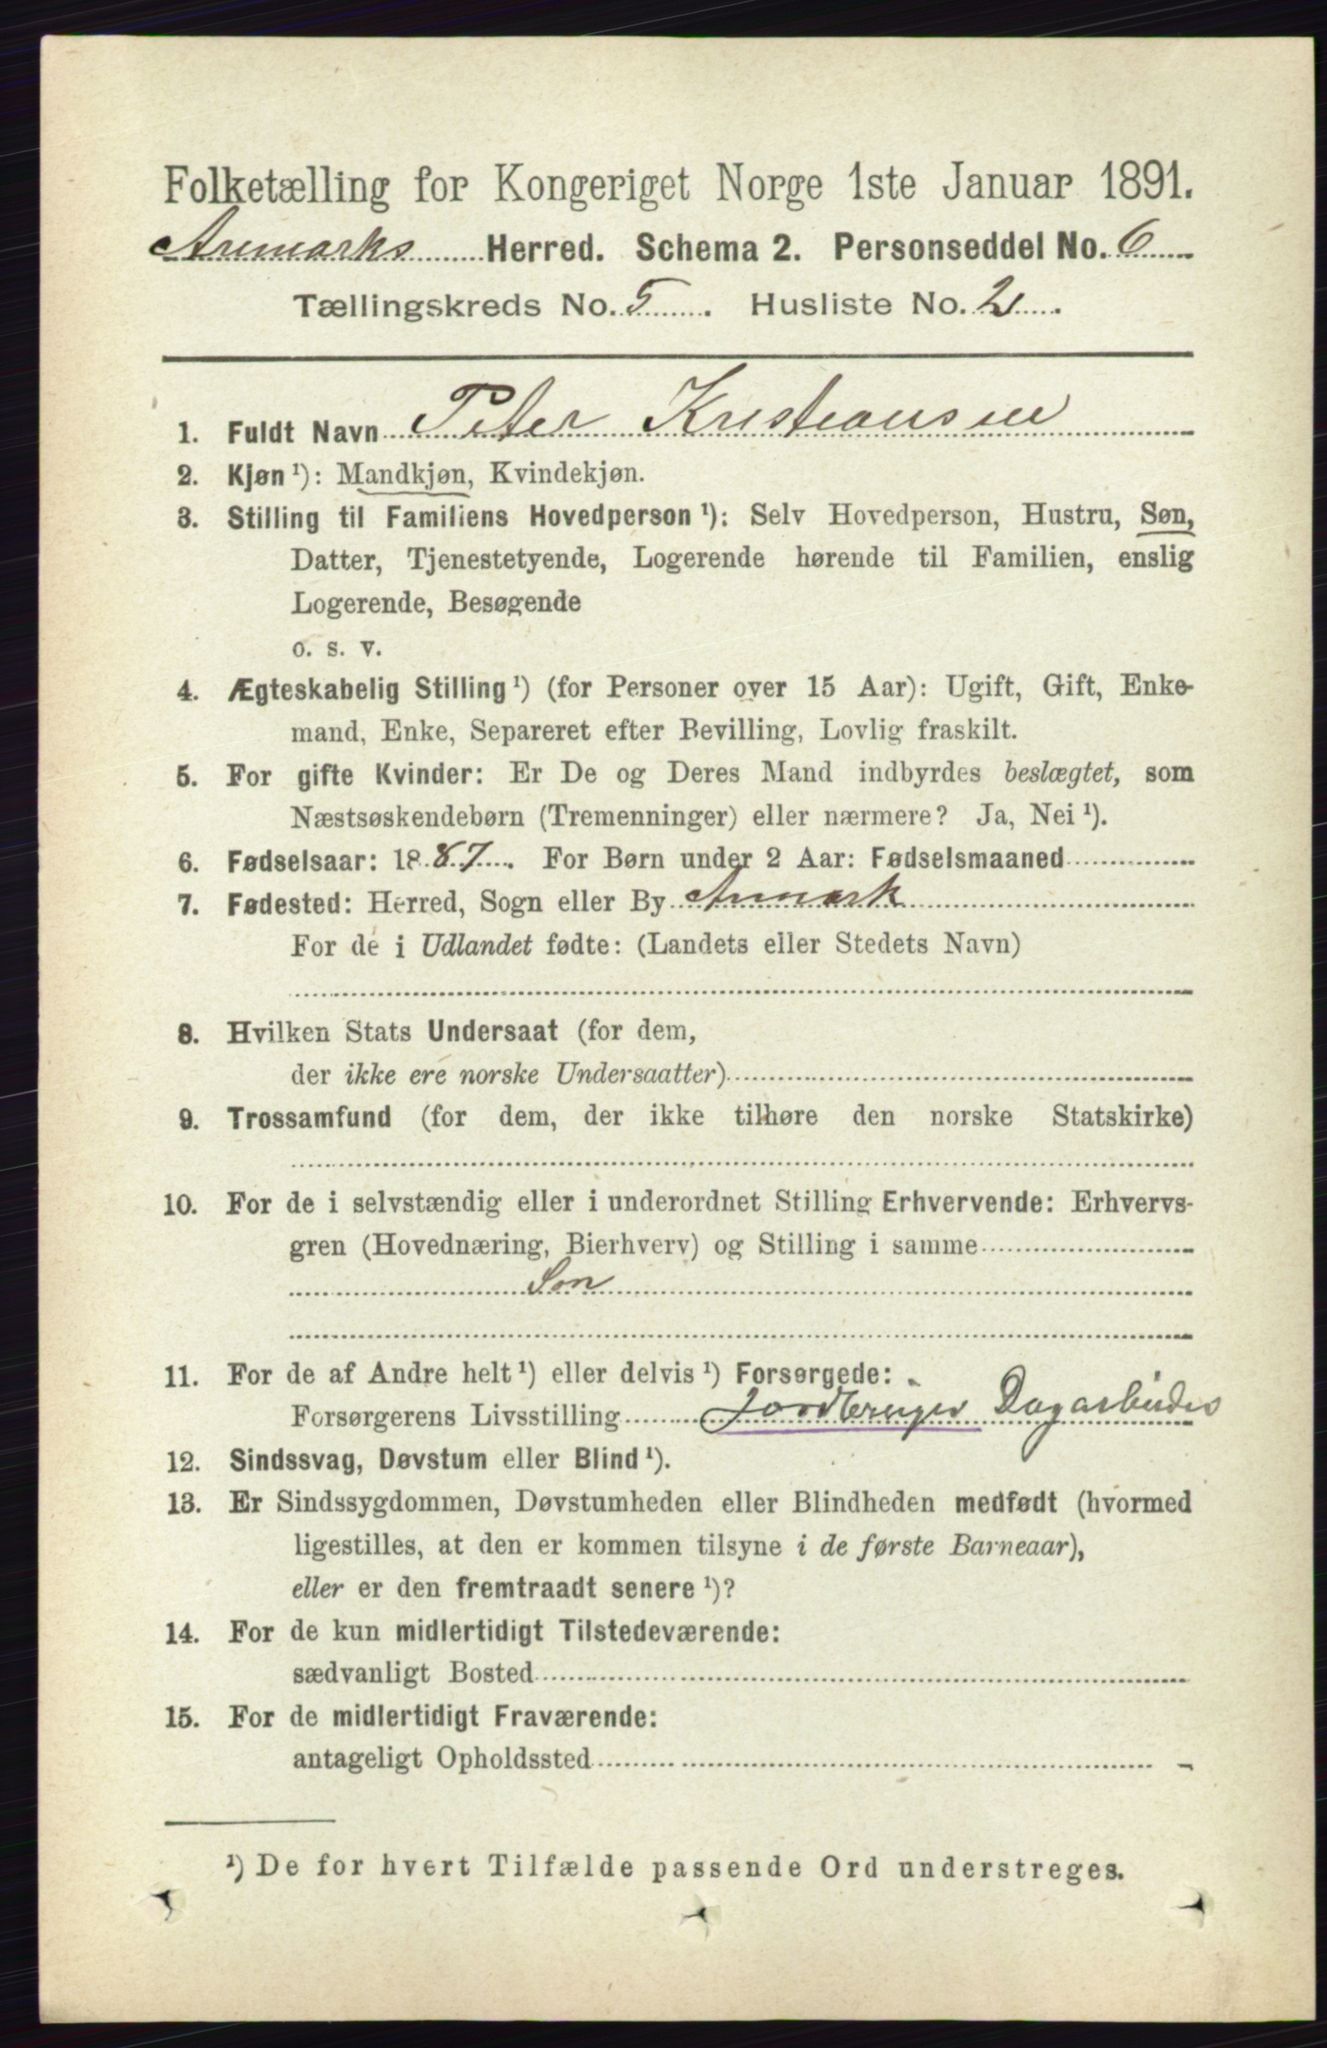 Folketælling for Kongeriget Norge 1ste Januar 1891.
Aremarks Herred. Schema 2. Personseddel No. 6
Tællingskreds No. 5. Husliste No. 2.
1. Fuldt Navn Peter Kristiansen
2. Kjøn ¹): Mandkjøn, Kvindekjøn.
3. Stilling til Familiens Hovedperson ¹): Selv Hovedperson, Hustru, Søn,
Datter, Tjenestetyende, Logerende hørende til Familien, enslig
Logerende, Besøgende
o. s. v.
4. Ægteskabelig Stilling ¹) (for Personer over 15 Aar): Ugift, Gift, Enke-
mand, Enke, Separeret efter Bevilling, Lovlig fraskilt.
5. For gifte Kvinder: Er De og Deres Mand indbyrdes beslægtet, som
Næstsøskendebørn (Tremenninger) eller nærmere? Ja, Nei ¹).
6. Fødselsaar: 1887. For Børn under 2 Aar: Fødselsmaaned
7. Fødested: Herred, Sogn eller By Armark
For de i Udlandet fødte: (Landets eller Stedets Navn)
8. Hvilken Stats Undersaat (for dem,
der ikke ere norske Undersaatter)
9. Trossamfund (for dem, der ikke tilhøre den norske Statskirke)
10. For de i selvstændig eller i underordnet Stilling Erhvervende: Erhvervs-
gren (Hovednæring, Bierhverv) og Stilling i samme
Søn
11. For de af Andre helt ¹) eller delvis ¹) Forsørgede:
Forsørgerens Livsstilling Jordbruger Dagarbeider
12. Sindssvag, Døvstum eller Blind ¹).
13. Er Sindssygdommen, Døvstumheden eller Blindheden medfødt (hvormed
ligestilles, at den er kommen tilsyne i de første Barneaar),
eller er den fremtraadt senere ¹)?
14. For de kun midlertidigt Tilstedeværende:
sædvanligt Bosted
15. For de midlertidigt Fraværende:
antageligt Opholdssted
¹) De for hvert Tilfælde passende Ord understreges.